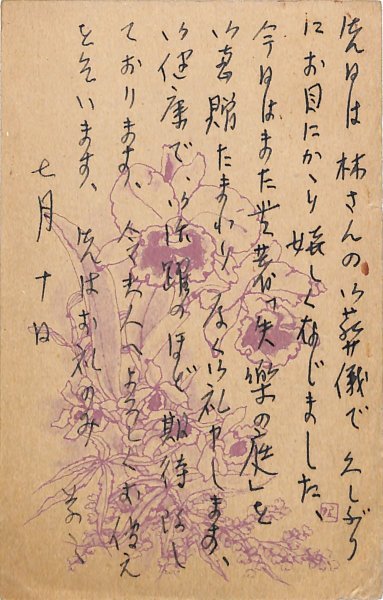 先日は林さんの御葬儀で久しぶり
にお目にかゝり嬉しく存じました、
今日はまた貴著「失樂の庭」を
御恵贈たまわり厚く御礼申します、
御健康で、御活躍のほど期待致し
ております、令夫人へよろしくお傳え
を乞います、先はお礼のみ
七月十日